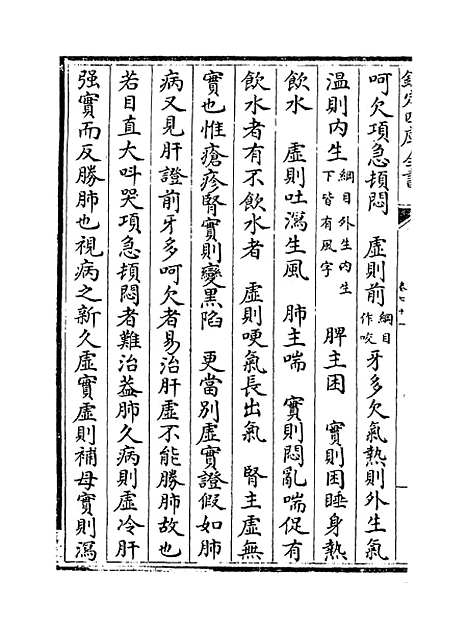 欽定四庫全書
呵欠項急頓悶　虛則前綱目作咬牙多欠氣熱則外生氣
溫則内生綱目外生内生下皆有風字　脾主困　實則困睡身熱
飲水　虛則吐瀉生風　肺主喘　實則悶亂喘促有
飲水者有不飲水者　虛則哽氣長出氣　腎主虛無
實也惟瘡疹腎實則變黑陷　更當别虛實證假如肺
病又見肝證前牙多呵欠者易治肝虛不能勝肺故也
若目直大呌哭項急頓悶者難治葢肺久病則虛冷肝
强實而反勝肺也視病之新久虛實虛則補母實則瀉